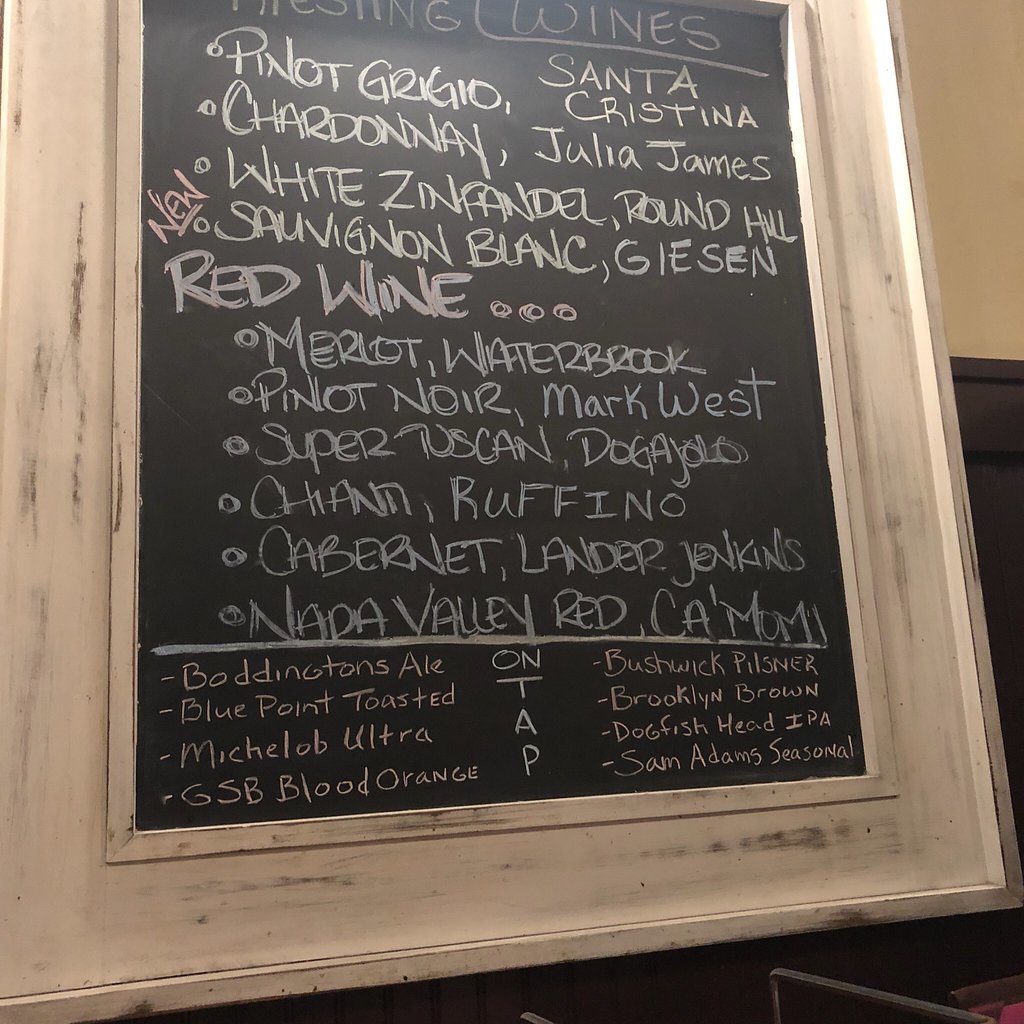 WINES
• PINOT GRIGIO, SANTA CRISTINA
• CHARDONNAY, Julia James
• WHITE ZINFANDEL, ROUND HILL
NEW • SAUVIGNON BLANC, GIESEN
RED WINE ...
• MERLOT, WATERBROOK
• PINOT NOIR, Mark West
• SUPER TUSCAN, DOGAJOLO
• CHIANTI, RUFFINO
• CABERNET, LANDER JENKINS
• NAPA VALLEY RED, CA'MOMI
ON TAP
- Boddingtons Ale
- Blue Point Toasted
- Michelob Ultra
- GSB Blood Orange
- Bushwick PILSNER
- Brooklyn Brown
- Dogfish Head IPA
- Sam Adams Seasonal